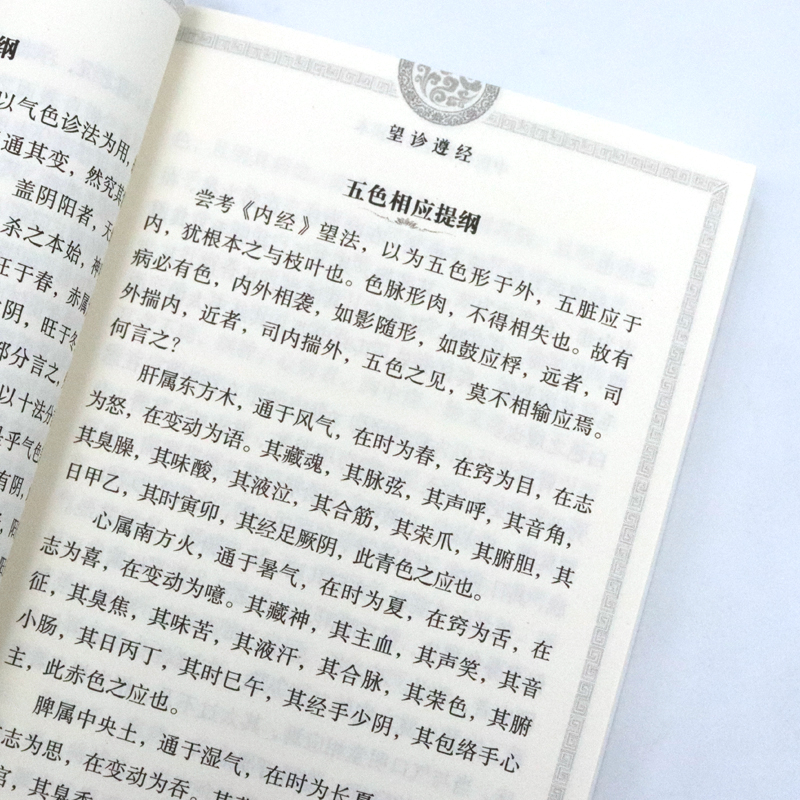 纲
以气色诊法为用,
通其变,然究其
盖阴阳者,天
杀之本始,神
旺于春,赤属
阴,旺于冬
部分言之,
以十法分
是乎气色
有阴,
望诊遵经
五色相应提纲
尝考《内经》望法,以为五色形于外,五脏应于
内,犹根本之与枝叶也。色脉形肉,不得相失也。故有
病必有色,内外相袭,如影随形,如鼓应桴,远者,司
外揣内,近者,司内揣外,五色之见,莫不相输应焉。
何言之?
肝属东方木,通于风气,在时为春,在窍为目,在志
为怒,在变动为语。其藏魂,其脉弦,其声呼,其音角,
其臭臊,其味酸,其液泣,其合筋,其荣爪,其腑胆,其
日甲乙,其时寅卯,其经足厥阴,此青色之应也。
心属南方火,通于暑气,在时为夏,在窍为舌,在
志为喜,在变动为噫。其藏神,其主血,其声笑,其音
征,其臭焦,其味苦,其液汗,其合脉,其荣色,其腑
小肠,其日丙丁,其时巳午,其经手少阴,其包络手心
主,此赤色之应也。
脾属中央土,通于湿气,在时为长夏
志为思,在变动为吞。其
宫,其臭香